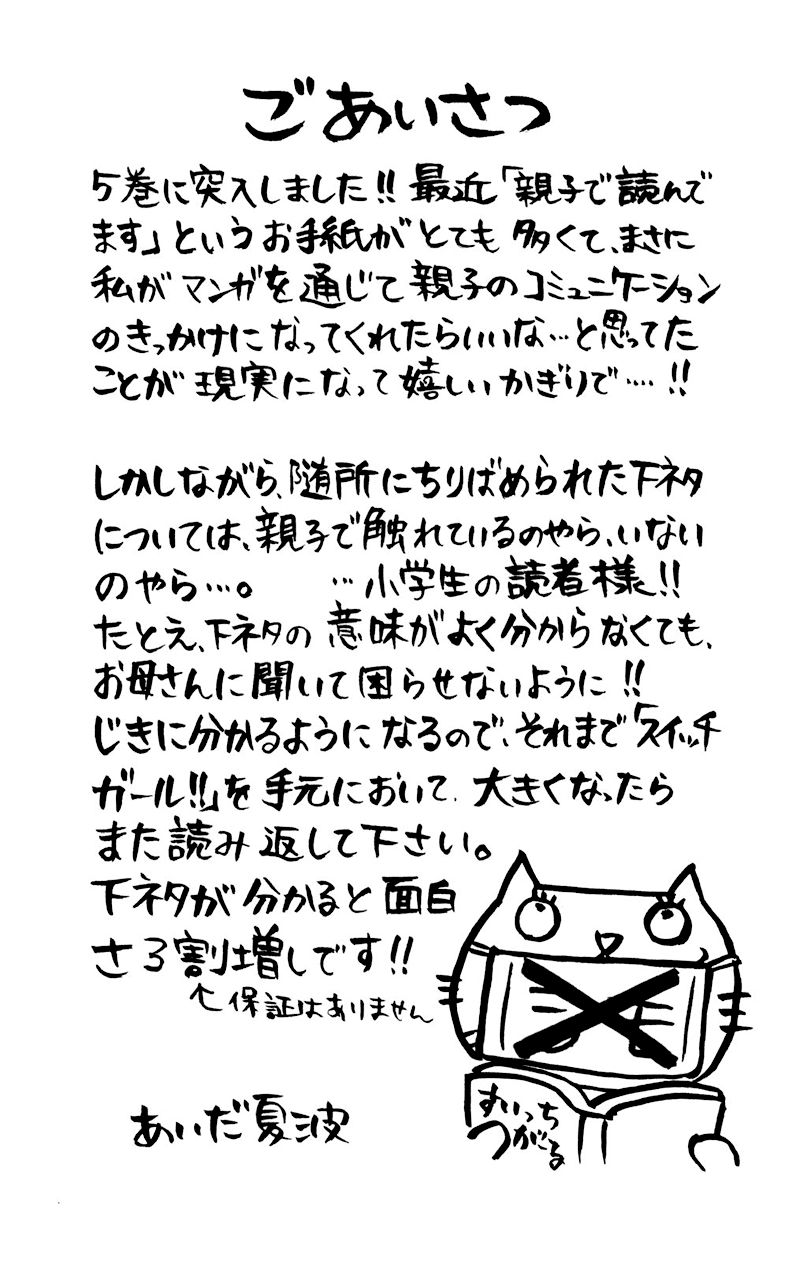 ごあいさつ
5巻に突入しました!! 最近「親子で読んで
ます」というお手紙がとても多くて、まさに
私がマンガを通じて親子のコミュニケーション
のきっかけになってくれたらいいな…と思ってた
ことが現実になって嬉しいかぎりで‥‥!!
しかしながら、随所にちりばめられた下ネタ
については、親子で触れているのやら、いない
のやら…。 …小学生の読者様!!
たとえ、下ネタの意味がよく分からなくても、
お母さんに聞いて困らせないように!!
じきに分かるようになるので、それまで「スイッチ
ガール!!」を手元において、大きくなったら
また読み返して下さい。
下ネタが分かると面白
さ3割増しです!!
↑保証はありません
あいだ夏波
すいっち
つがーる